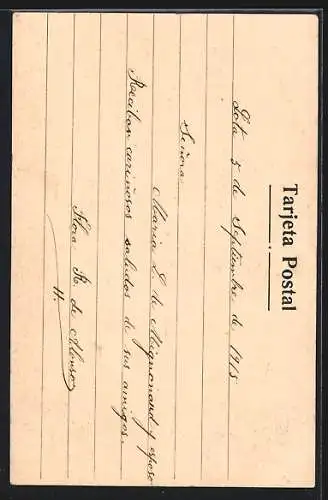 Tarjeta Postal
Lota 5 de Septiembre de 1915
Señora
Maria L. de Mignonaud y esposo
Reciban cariñosos saludos de sus amigos.
Flora R. de Alonso
H.